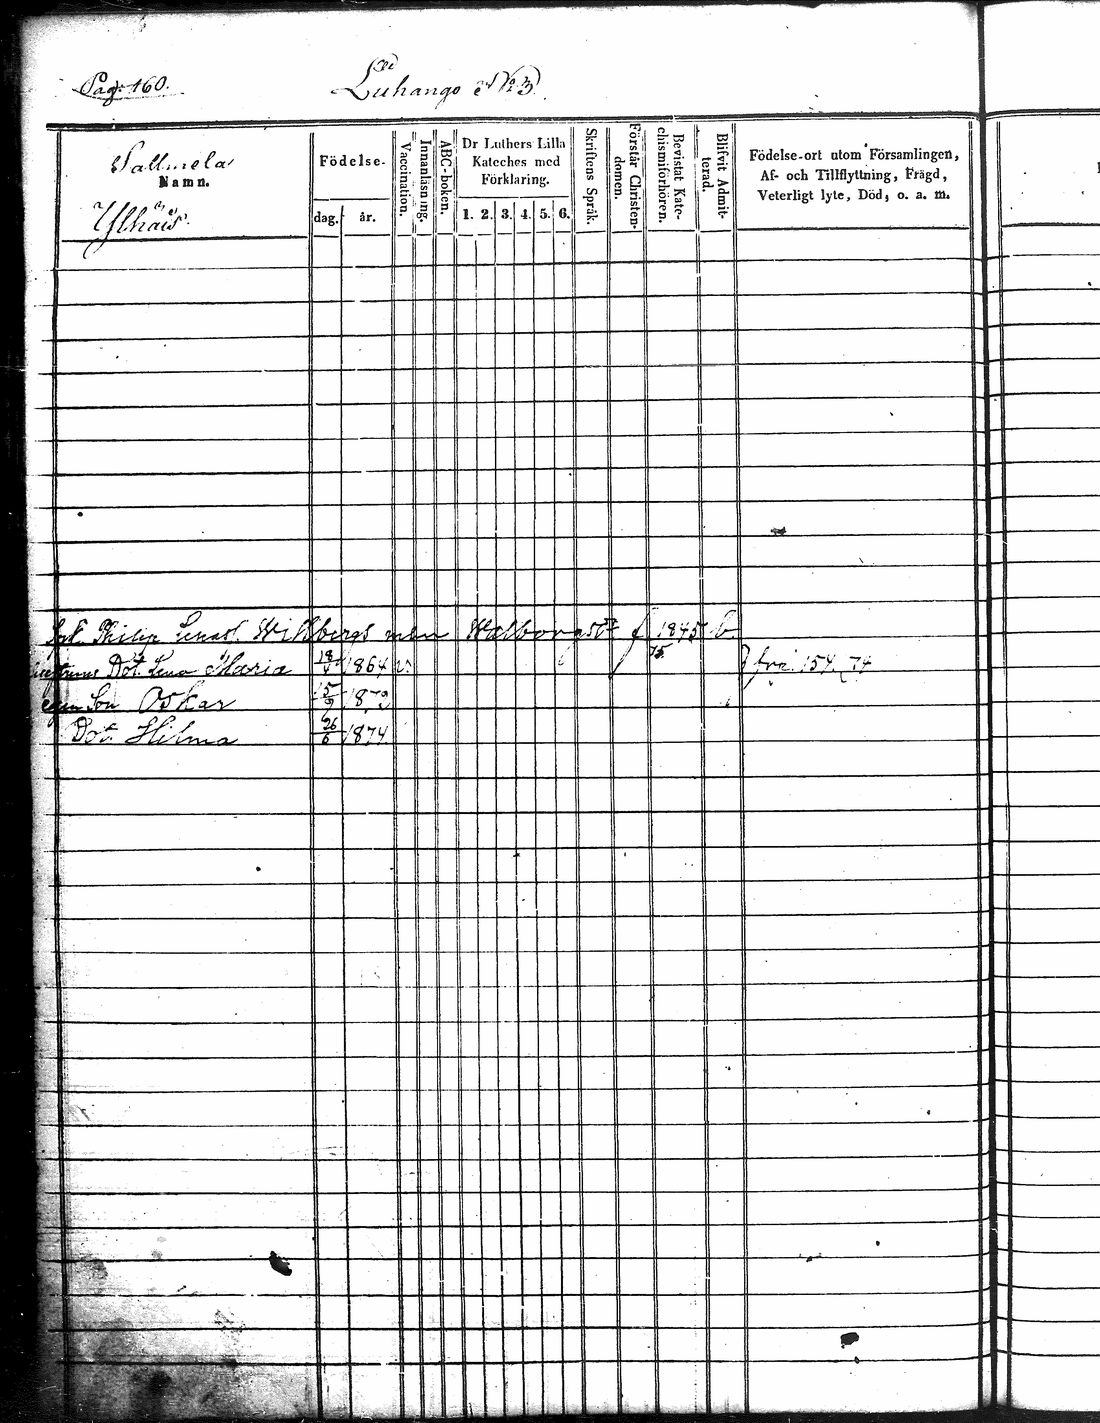 Pag. 160.
Luhango N:o 3
Sallmela
Namn.
Ylhäis
Födelse-
dag. år.
Vaccination.
Innanläsning.
ABC-boken.
Dr Luthers Lilla
Kateches med
Förklaring.
1. 2. 3. 4. 5. 6.
Skriftens Språk.
Förstår Christen-
domen.
Bevistat Kate-
chismiförhören.
Blifvit Admit-
terad.
Födelse-ort utom Församlingen,
Af- och Tillflyttning, Frägd,
Veterligt lyte, Död, o. a. m.
Philip Wihlbergs f 1845 b
Dot. Lena Maria 18/4 1864 v. 75. frå. 154. 74
Son Oskar 15/9 1872
Dot. Hilma 26/6 1874